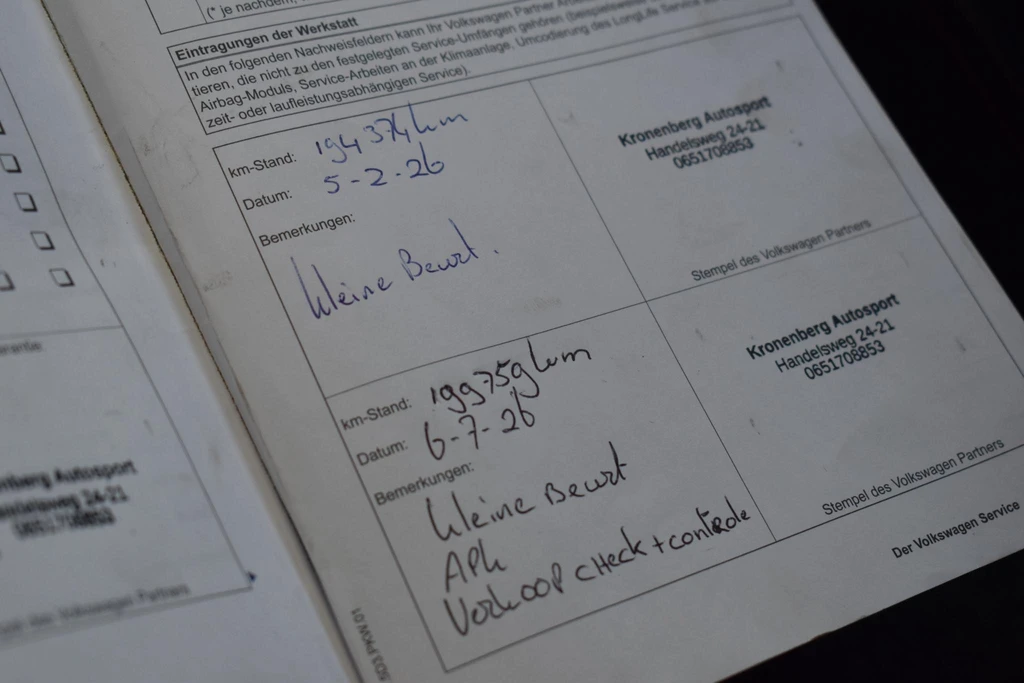 (* je nachdem,
Eintragungen der Werkstatt
In den folgenden Nachweisfeldern kann Ihr Volkswagen Partner
tieren, die nicht zu den festgelegten Service-Umfängen gehören (beispielsweise
Airbag-Moduls, Service-Arbeiten an der Klimaanlage, Umcodierung des LongLife Service
zeit- oder laufleistungsabhängigen Service).
km-Stand: 194374km
Datum: 5-2-26
Bemerkungen:
kleine Beurt.
Kronenberg Autosport
Handelsweg 24-21
0651708853
Stempel des Volkswagen Partners
km-Stand: 199759km
Datum: 6-7-26
Bemerkungen:
kleine Beurt
APK
Verkoop check + controle
Kronenberg Autosport
Handelsweg 24-21
0651708853
Stempel des Volkswagen Partners
Der Volkswagen Service
5D3.PKW.01
Autosport
24-21
0651708853
Volkswagen Partners